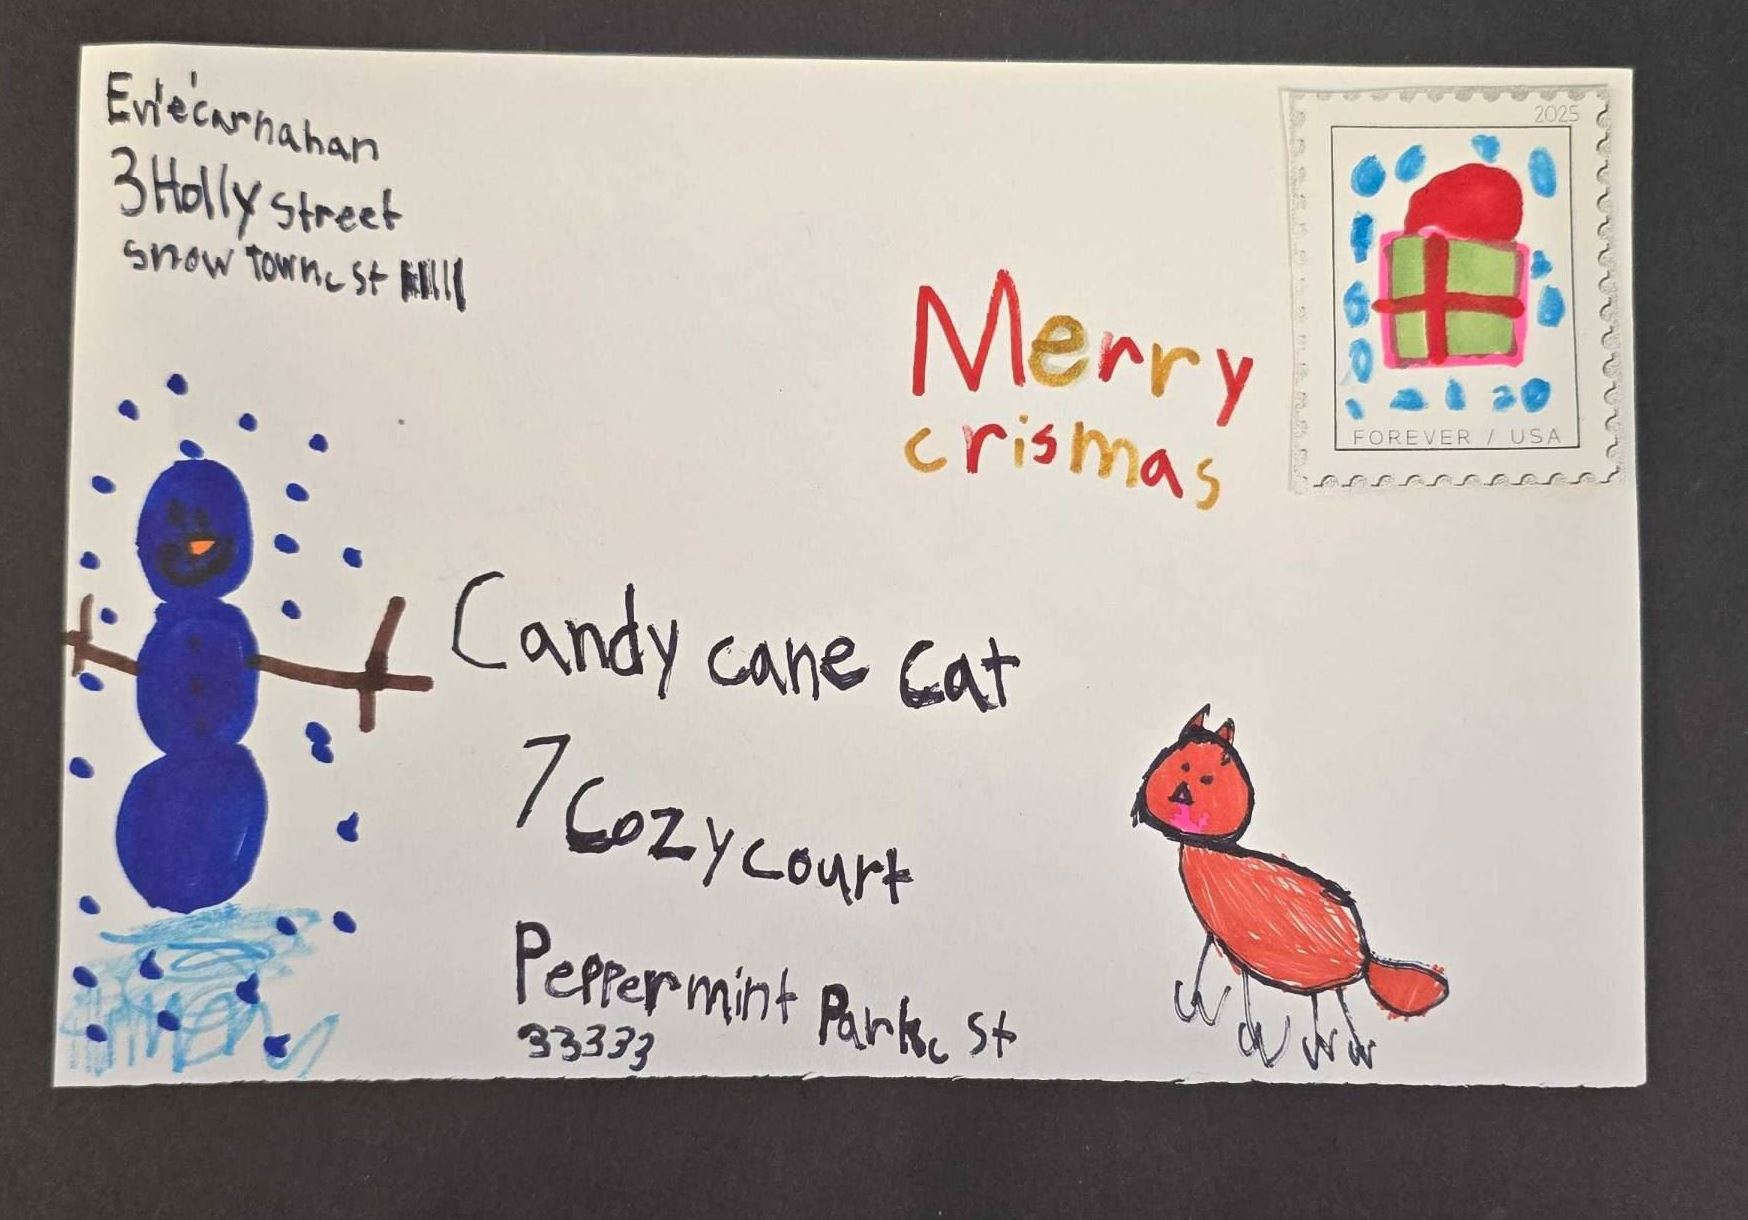 Evie carnahan
3 Holly Street
snow town, st 11111
2025
FOREVER / USA
Merry
crismas
Candy cane Cat
7 Cozy court
Peppermint Park, st
33333